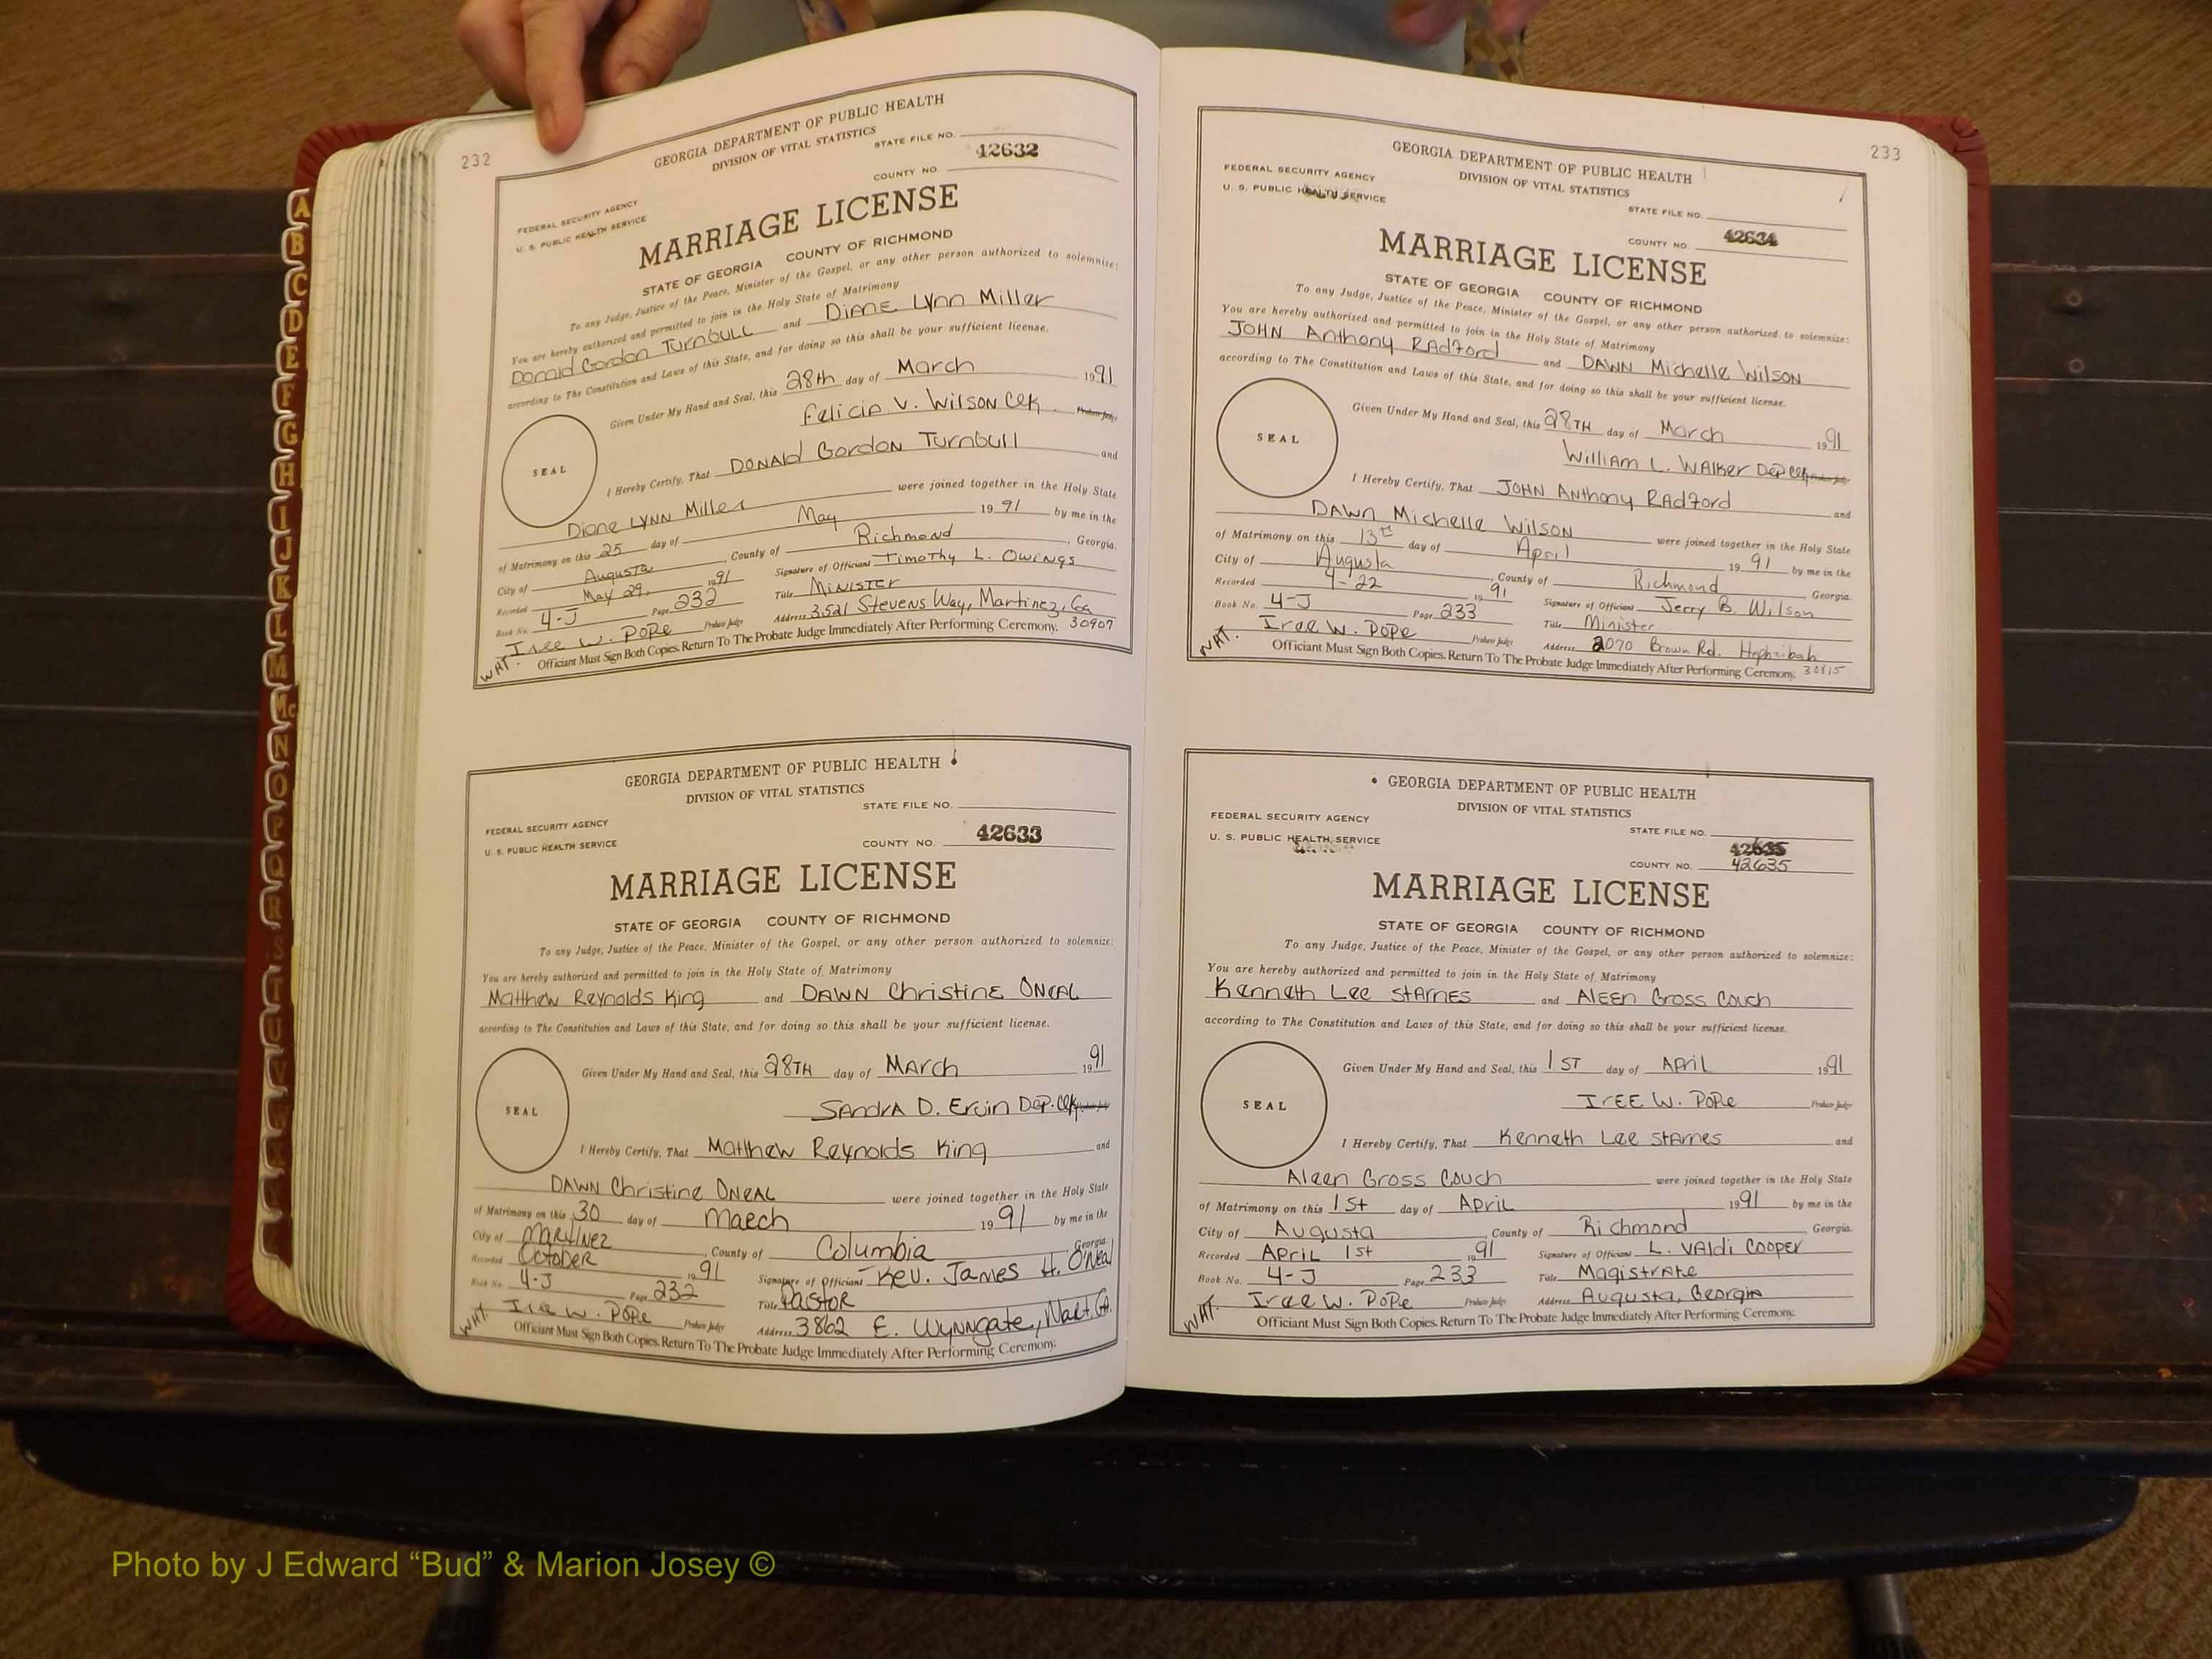 232
GEORGIA DEPARTMENT OF PUBLIC HEALTH
DIVISION OF VITAL STATISTICS
STATE FILE NO.
42632
COUNTY NO.
FEDERAL SECURITY AGENCY
U. S. PUBLIC HEALTH SERVICE
MARRIAGE LICENSE
STATE OF GEORGIA COUNTY OF RICHMOND
To any Judge, Justice of the Peace, Minister of the Gospel, or any other person authorized to solemnize:
You are hereby authorized and permitted to join in the Holy State of Matrimony
Donald Gordon Turnbull and Diane Lynn Miller
according to The Constitution and Laws of this State, and for doing so this shall be your sufficient license.
Given Under My Hand and Seal, this 28th day of March 1991
Felicia V. Wilson Clk. Probate Judge
SEAL
I Hereby Certify, That Donald Gordon Turnbull and
Diane Lynn Miller were joined together in the Holy State
of Matrimony on this 25 day of May 1991 by me in the
City of Augusta, County of Richmond, Georgia.
Recorded May 29, 1991 Signature of Officiant Timothy L. Owings
Book No. 4-J Page 232 Title Minister
Iree W. Pope Probate Judge Address 3521 Stevens Way, Martinez, Ga 30907
WHT. Officiant Must Sign Both Copies. Return To The Probate Judge Immediately After Performing Ceremony.
GEORGIA DEPARTMENT OF PUBLIC HEALTH
DIVISION OF VITAL STATISTICS
STATE FILE NO.
FEDERAL SECURITY AGENCY
U. S. PUBLIC HEALTH SERVICE
COUNTY NO. 42633
MARRIAGE LICENSE
STATE OF GEORGIA COUNTY OF RICHMOND
To any Judge, Justice of the Peace, Minister of the Gospel, or any other person authorized to solemnize:
You are hereby authorized and permitted to join in the Holy State of Matrimony
Matthew Reynolds King and Dawn Christine Oneal
according to The Constitution and Laws of this State, and for doing so this shall be your sufficient license.
Given Under My Hand and Seal, this 28TH day of March 1991
Sandra D. Ervin Dep. Clk Probate Judge
SEAL
I Hereby Certify, That Matthew Reynolds King and
Dawn Christine Oneal were joined together in the Holy State
of Matrimony on this 30 day of March 1991 by me in the
City of Martinez, County of Columbia, Georgia.
Recorded October 1991 Signature of Officiant Rev. James H. O'Neal
Book No. 4-J Page 232 Title Pastor
Iree W. Pope Probate Judge Address 3862 E. Wynngate, Mart. GA.
WHT. Officiant Must Sign Both Copies. Return To The Probate Judge Immediately After Performing Ceremony.
233
GEORGIA DEPARTMENT OF PUBLIC HEALTH
DIVISION OF VITAL STATISTICS
FEDERAL SECURITY AGENCY
U. S. PUBLIC HEALTH SERVICE
STATE FILE NO.
COUNTY NO. 42634
MARRIAGE LICENSE
STATE OF GEORGIA COUNTY OF RICHMOND
To any Judge, Justice of the Peace, Minister of the Gospel, or any other person authorized to solemnize:
You are hereby authorized and permitted to join in the Holy State of Matrimony
John Anthony Radford and Dawn Michelle Wilson
according to The Constitution and Laws of this State, and for doing so this shall be your sufficient license.
Given Under My Hand and Seal, this 28TH day of March 1991
William L. Walker Dep Clk Probate Judge
SEAL
I Hereby Certify, That John Anthony Radford and
Dawn Michelle Wilson were joined together in the Holy State
of Matrimony on this 13th day of April 1991 by me in the
City of Augusta, County of Richmond Georgia.
Recorded 4-22 1991 Signature of Officiant Jerry B. Wilson
Book No. 4-J Page 233 Title Minister
Iree W. Pope Probate Judge Address 2070 Brown Rd. Hephzibah 30815
WHT. Officiant Must Sign Both Copies. Return To The Probate Judge Immediately After Performing Ceremony.
GEORGIA DEPARTMENT OF PUBLIC HEALTH
DIVISION OF VITAL STATISTICS
FEDERAL SECURITY AGENCY
U. S. PUBLIC HEALTH SERVICE
STATE FILE NO.
42635
COUNTY NO. 42635
MARRIAGE LICENSE
STATE OF GEORGIA COUNTY OF RICHMOND
To any Judge, Justice of the Peace, Minister of the Gospel, or any other person authorized to solemnize:
You are hereby authorized and permitted to join in the Holy State of Matrimony
Kenneth Lee Starnes and Aleen Gross Couch
according to The Constitution and Laws of this State, and for doing so this shall be your sufficient license.
Given Under My Hand and Seal, this 1ST day of April 1991
Iree W. Pope Probate Judge
SEAL
I Hereby Certify, That Kenneth Lee Starnes and
Aleen Gross Couch were joined together in the Holy State
of Matrimony on this 1st day of April 1991 by me in the
City of Augusta, County of Richmond Georgia.
Recorded April 1st 1991 Signature of Officiant L. Valdi Cooper
Book No. 4-J Page 233 Title Magistrate
Iree W. Pope Probate Judge Address Augusta, Georgia
WHT. Officiant Must Sign Both Copies. Return To The Probate Judge Immediately After Performing Ceremony.
A
B
C
D
E
F
G
H
I
J
K
L
M
Mc
N
O
P
Q
R
S
T
U
V
Photo by J Edward “Bud” & Marion Josey ©